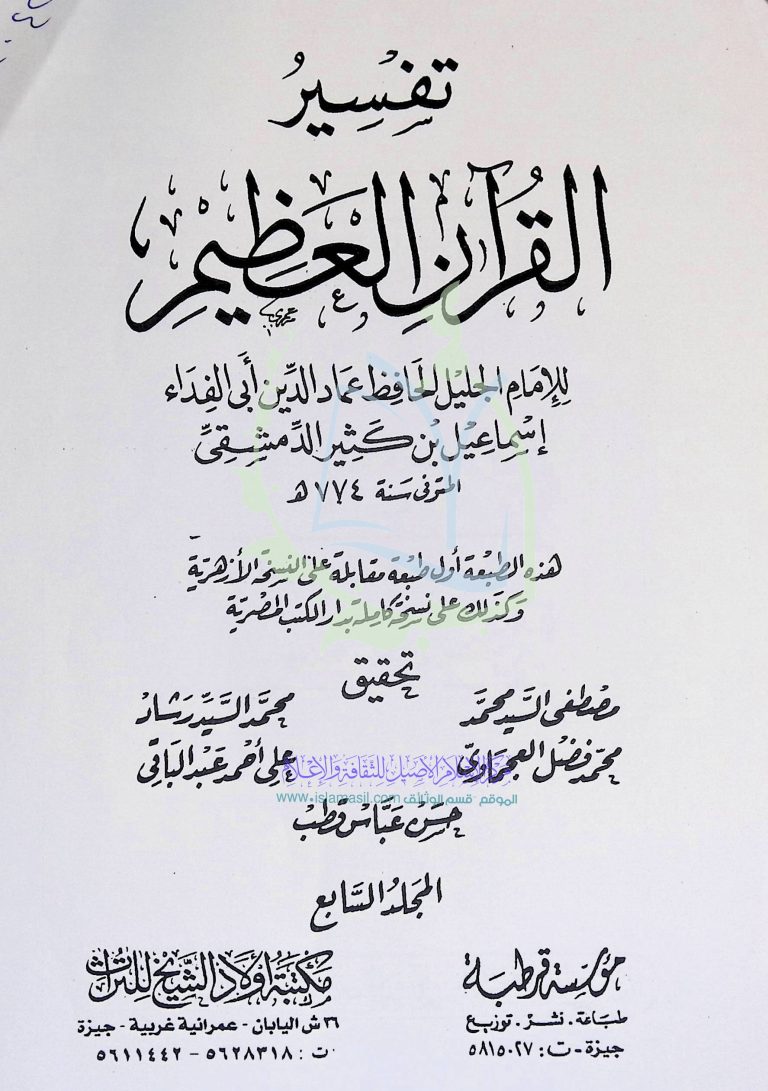 تفسير
القرآن العظيم
للإمام الجليل الحافظ عماد الدين أبي الفداء
إسماعيل بن كثير الدمشقي
المتوفى سنة ٧٧٤ هـ
هذه الطبعة أول طبعة مقابلة على النسخة الأزهرية
وكذلك على نسخة كاملة بدار الكتب المصرية
تحقيق
مصطفى السيد محمد محمد السيد رشاد
محمد فضل العجماوي علي أحمد عبد الباقي
الإسلام الأصيل للثقافة والإعلام
الموقع قسم الوثائق www.islamasil.com
حسن عباس قطب
المجلد السابع
مؤسسة قرطبة
طباعة . نشر . توزيع
جيزة - ت : ٥٨١٥٠٢٧
مكتبة أولاد الشيخ للتراث
٣٦ ش اليابان - عمرانية غربية - جيزة
ت : ٥٦٢٨٣١٨ - ٥٦١١٤٤٢